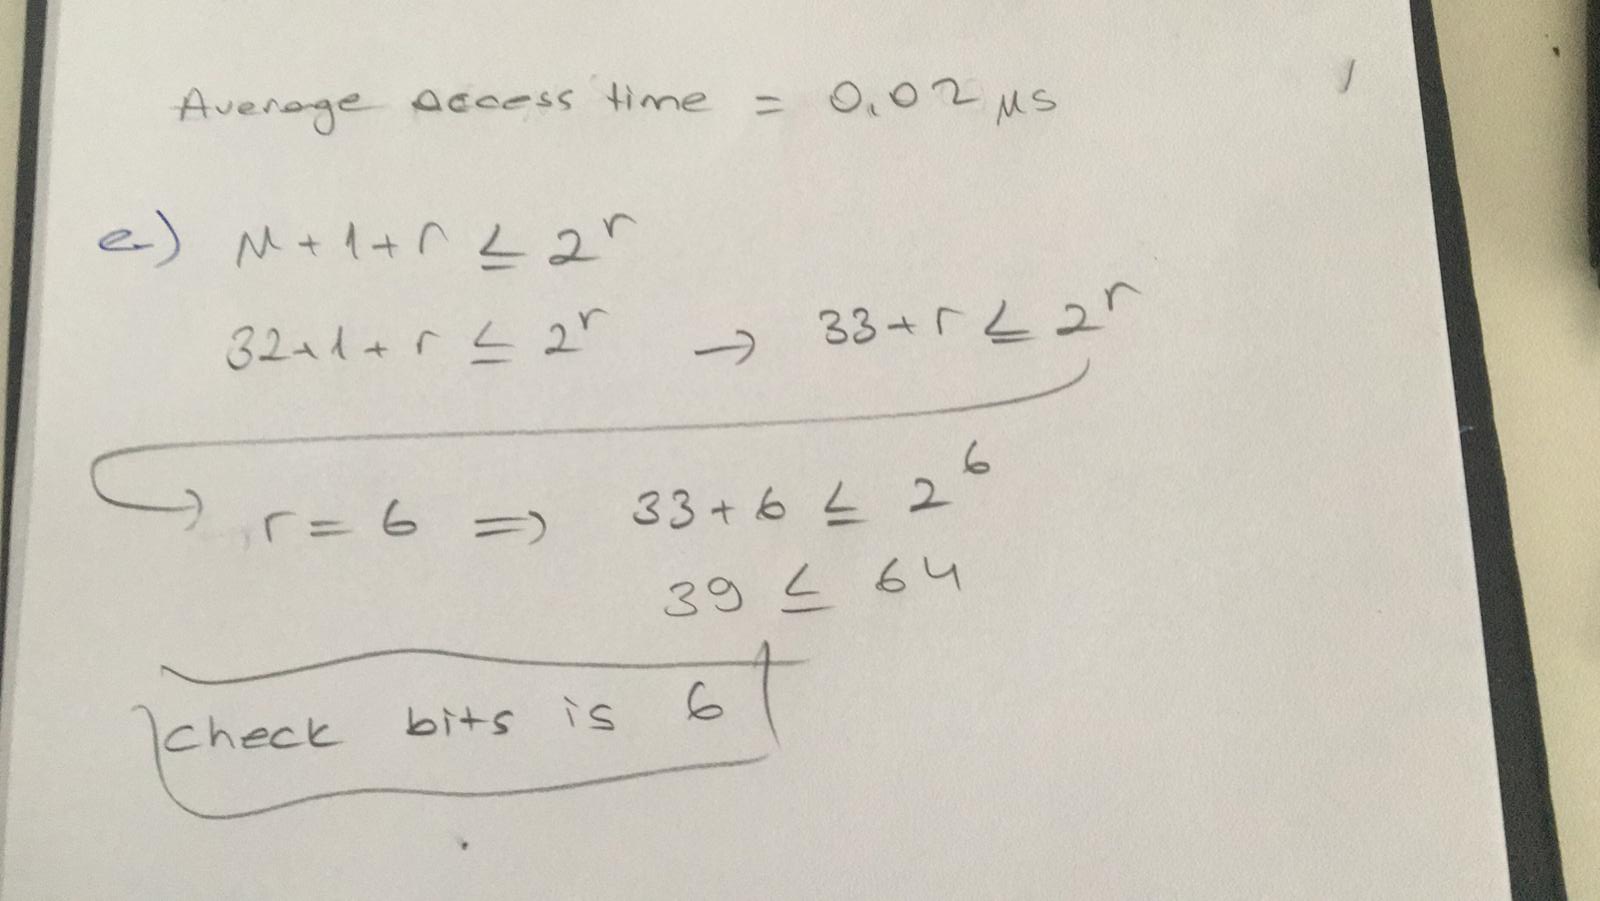 Average access time = 0.02 μs
e) M + 1 + r ≤ 2^r
32 + 1 + r ≤ 2^r → 33 + r ≤ 2^r
r = 6 ⇒ 33 + 6 ≤ 2^6
39 ≤ 64
check bits is 6